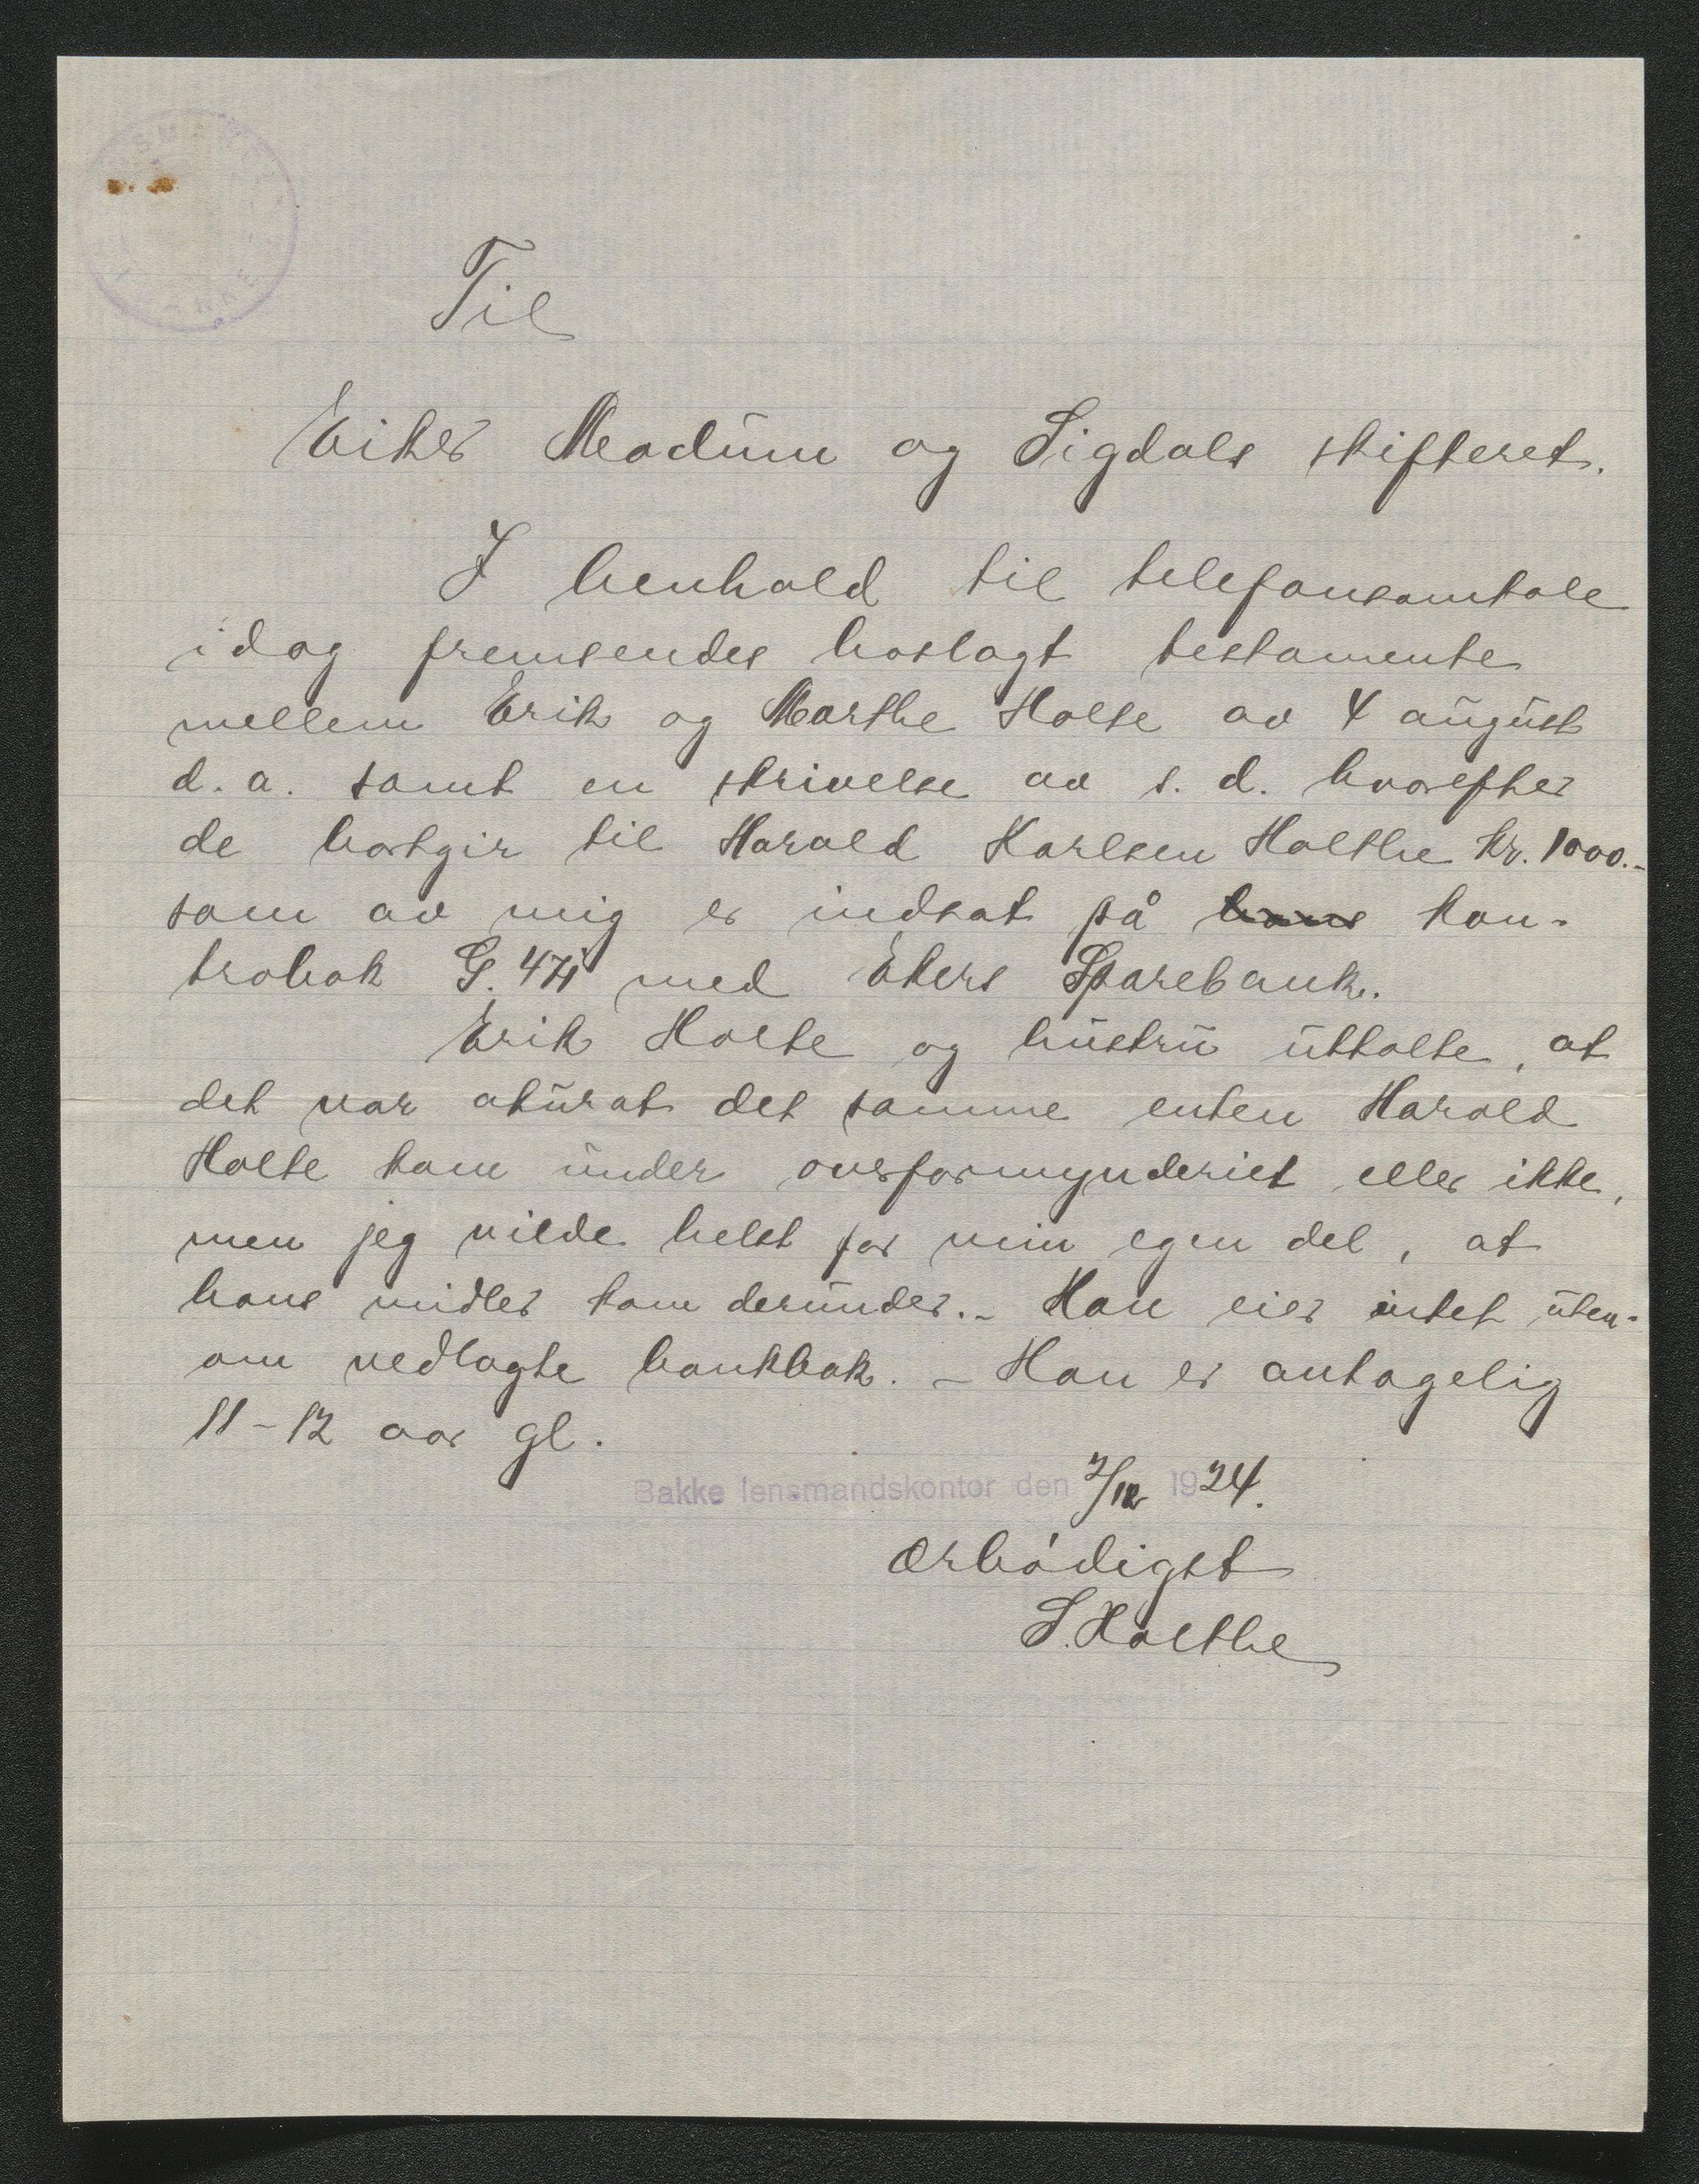 Til
Eiker Modum og Sigdals skifteret.
I henhold til telefonsamtale
idag fremsendes hoslagt testamente
mellem Erik og Marthe Holte av 4 august
d.a. samt en skrivelse av s.d. hvorefter
de bortgir til Harald Karlsen Holthe kr. 1000.-
som av mig er indsat på hans kon-
trabok G. 471 med Ekers Sparebank.
Erik Holte og hustru uttalte, at
det var akurat det samme enten Harald
Holte kom under overformynderiet eller ikke,
men jeg vilde helst for min egen del, at
hans midler kom derunder.- Han eier intet uten-
om vedlagte bankbok. - Han er antagelig
11-12 aar gl.
Bakke lensmandskontor den 2/12 1924.
Ærbødigst
S. Holthe